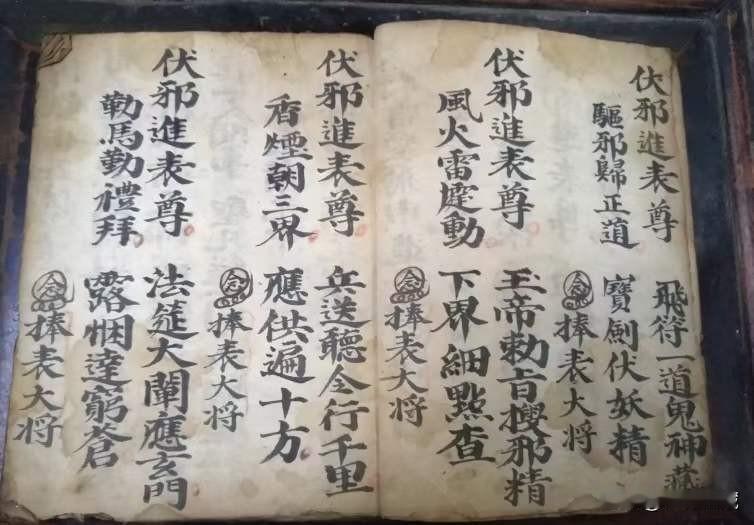 伏邪進表尊 飛符一道鬼神藏
驅邪歸正道 寶劍伏妖精
念捧表大将
伏邪進表尊 玉帝勅旨搜邪精
風火雷霆動 下界細點查
念捧表大将
伏邪進表尊 兵送聽令行千里
香煙朝三界 應供遍十方
念捧表大将
伏邪進表尊 法筵大闡應玄門
勒馬勤禮拜 露悃達窮蒼
念捧表大将